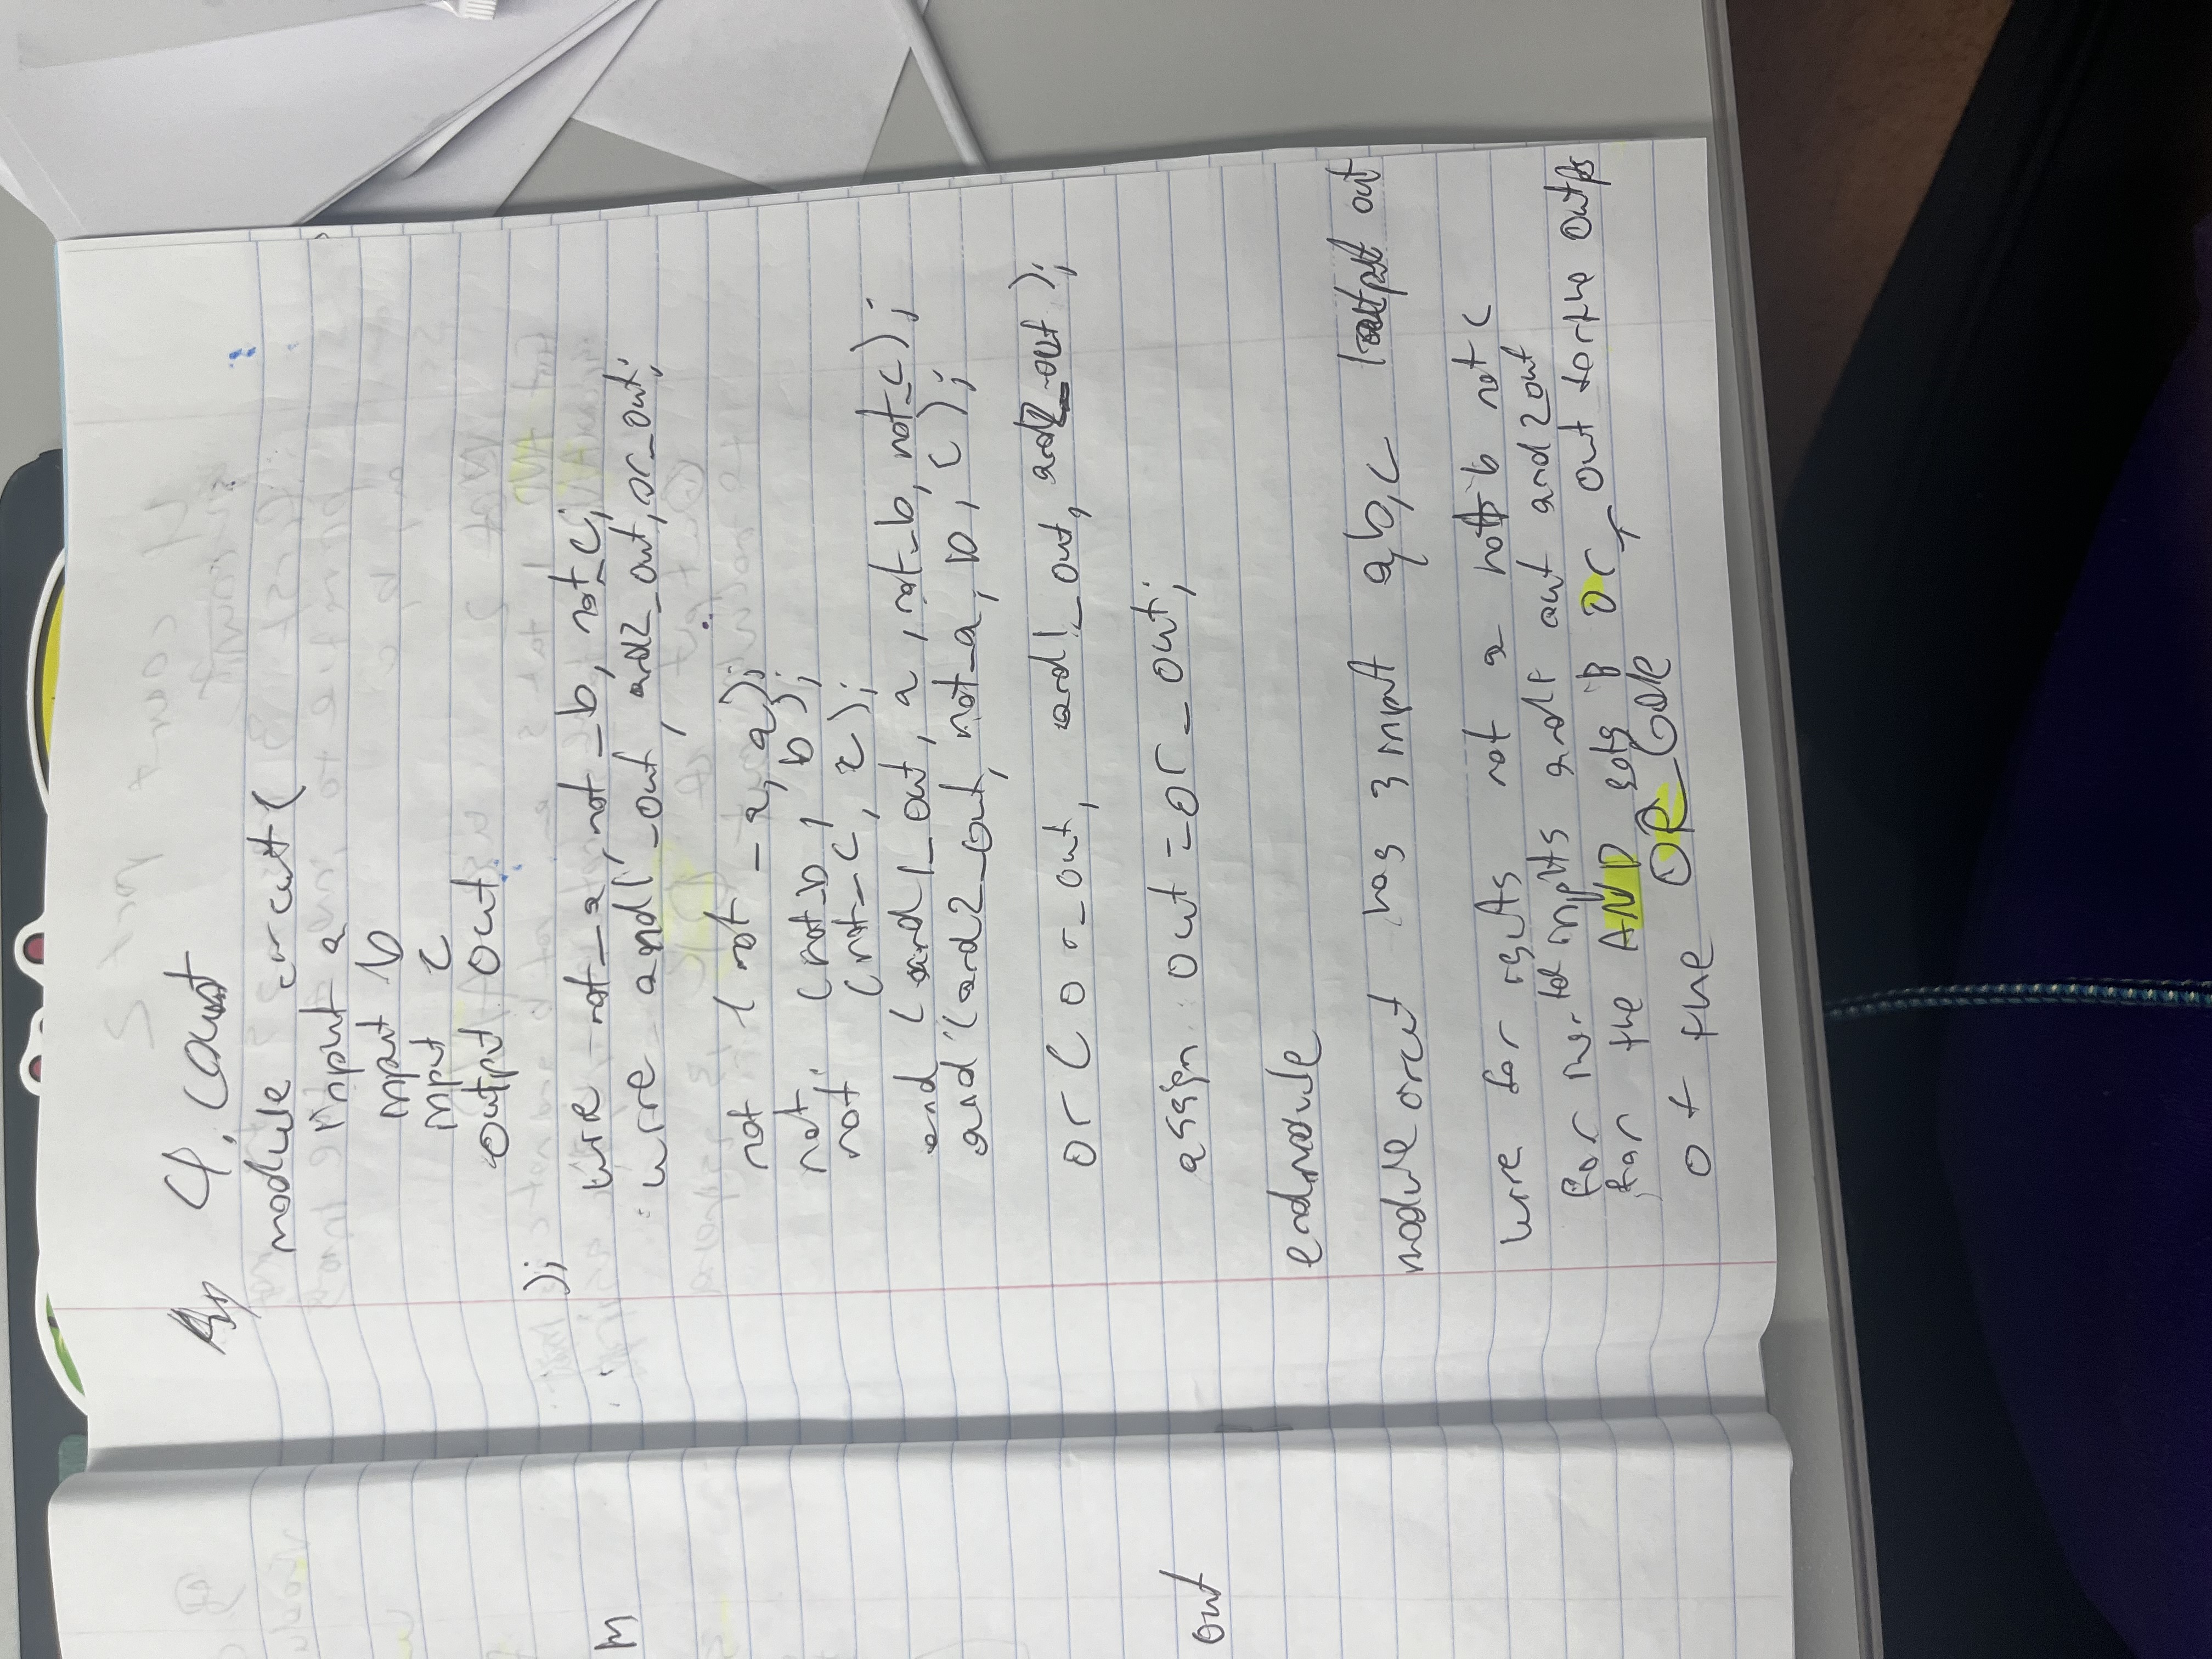 4. Count
module circut (
input a
input b
input c
output out
);
wire not_a, not_b, not_c;
wire and1_out, and2_out, or_out;
not ( not_a, a);
not (not_b, b);
not (not_c, c);
and (and1_out, a, not_b, not_c);
and (and2_out, not_a, b, c);
or ( or_out, and1_out, and2_out );
assign out = or_out;
endmodule
module circut has 3 input a, b, c 1 output out
wire for not a not b not c
for inputs and1 out and 2 out
for the AND or_out for the
of the OR_Gate
M
out